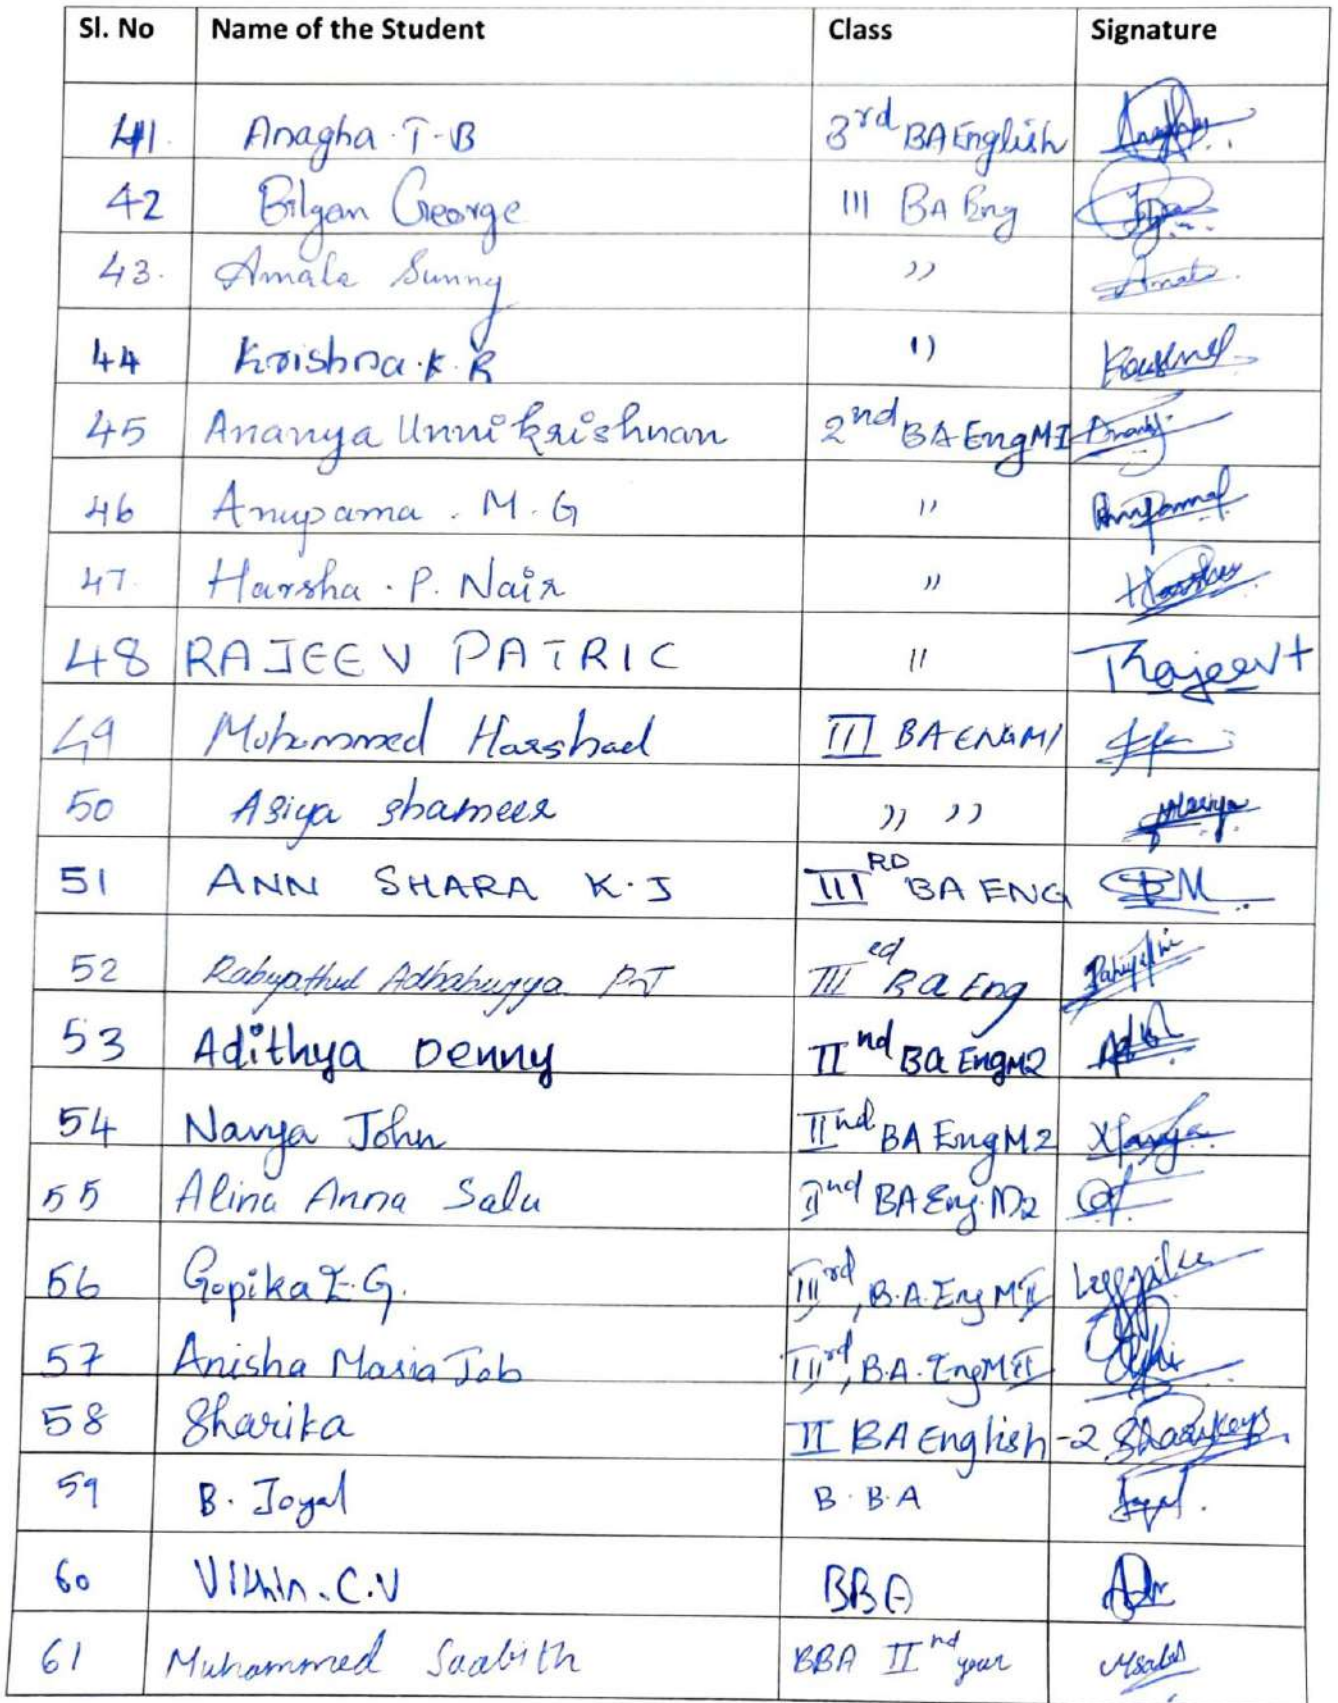 Sl. No Name of the Student Class Signature
41. Anagha. T. B 3rd BA English
42 Bilgan George III BA Eng
43. Amala Sunny ,,
44 Krishna. K. R ,,
45 Ananya Unnikrishnan 2nd BA Eng MI
46 Anupama . M. G ,,
47. Harsha . P. Nair ,,
48 RAJEEV PATRIC ,, Rajeev
49 Mohammed Harshad III BA ENG M1
50 Asiya shameer ,, ,,
51 ANN SHARA K. J III RD BA ENG
52 III Ba Eng
53 Adithya Denny II nd Ba Eng M2
54 Navya John II nd BA Eng M2
55 Alina Anna Salu II nd BA Eng. M2
56 Gopika E. G. III rd, B.A. Eng M II
57 Anisha Maria Job III rd, B.A. Eng M II
58 Sharika II BA English -2
59 B. Joyal B. B. A
60 C.V BBA
61 Muhammed Saabith BBA II nd year